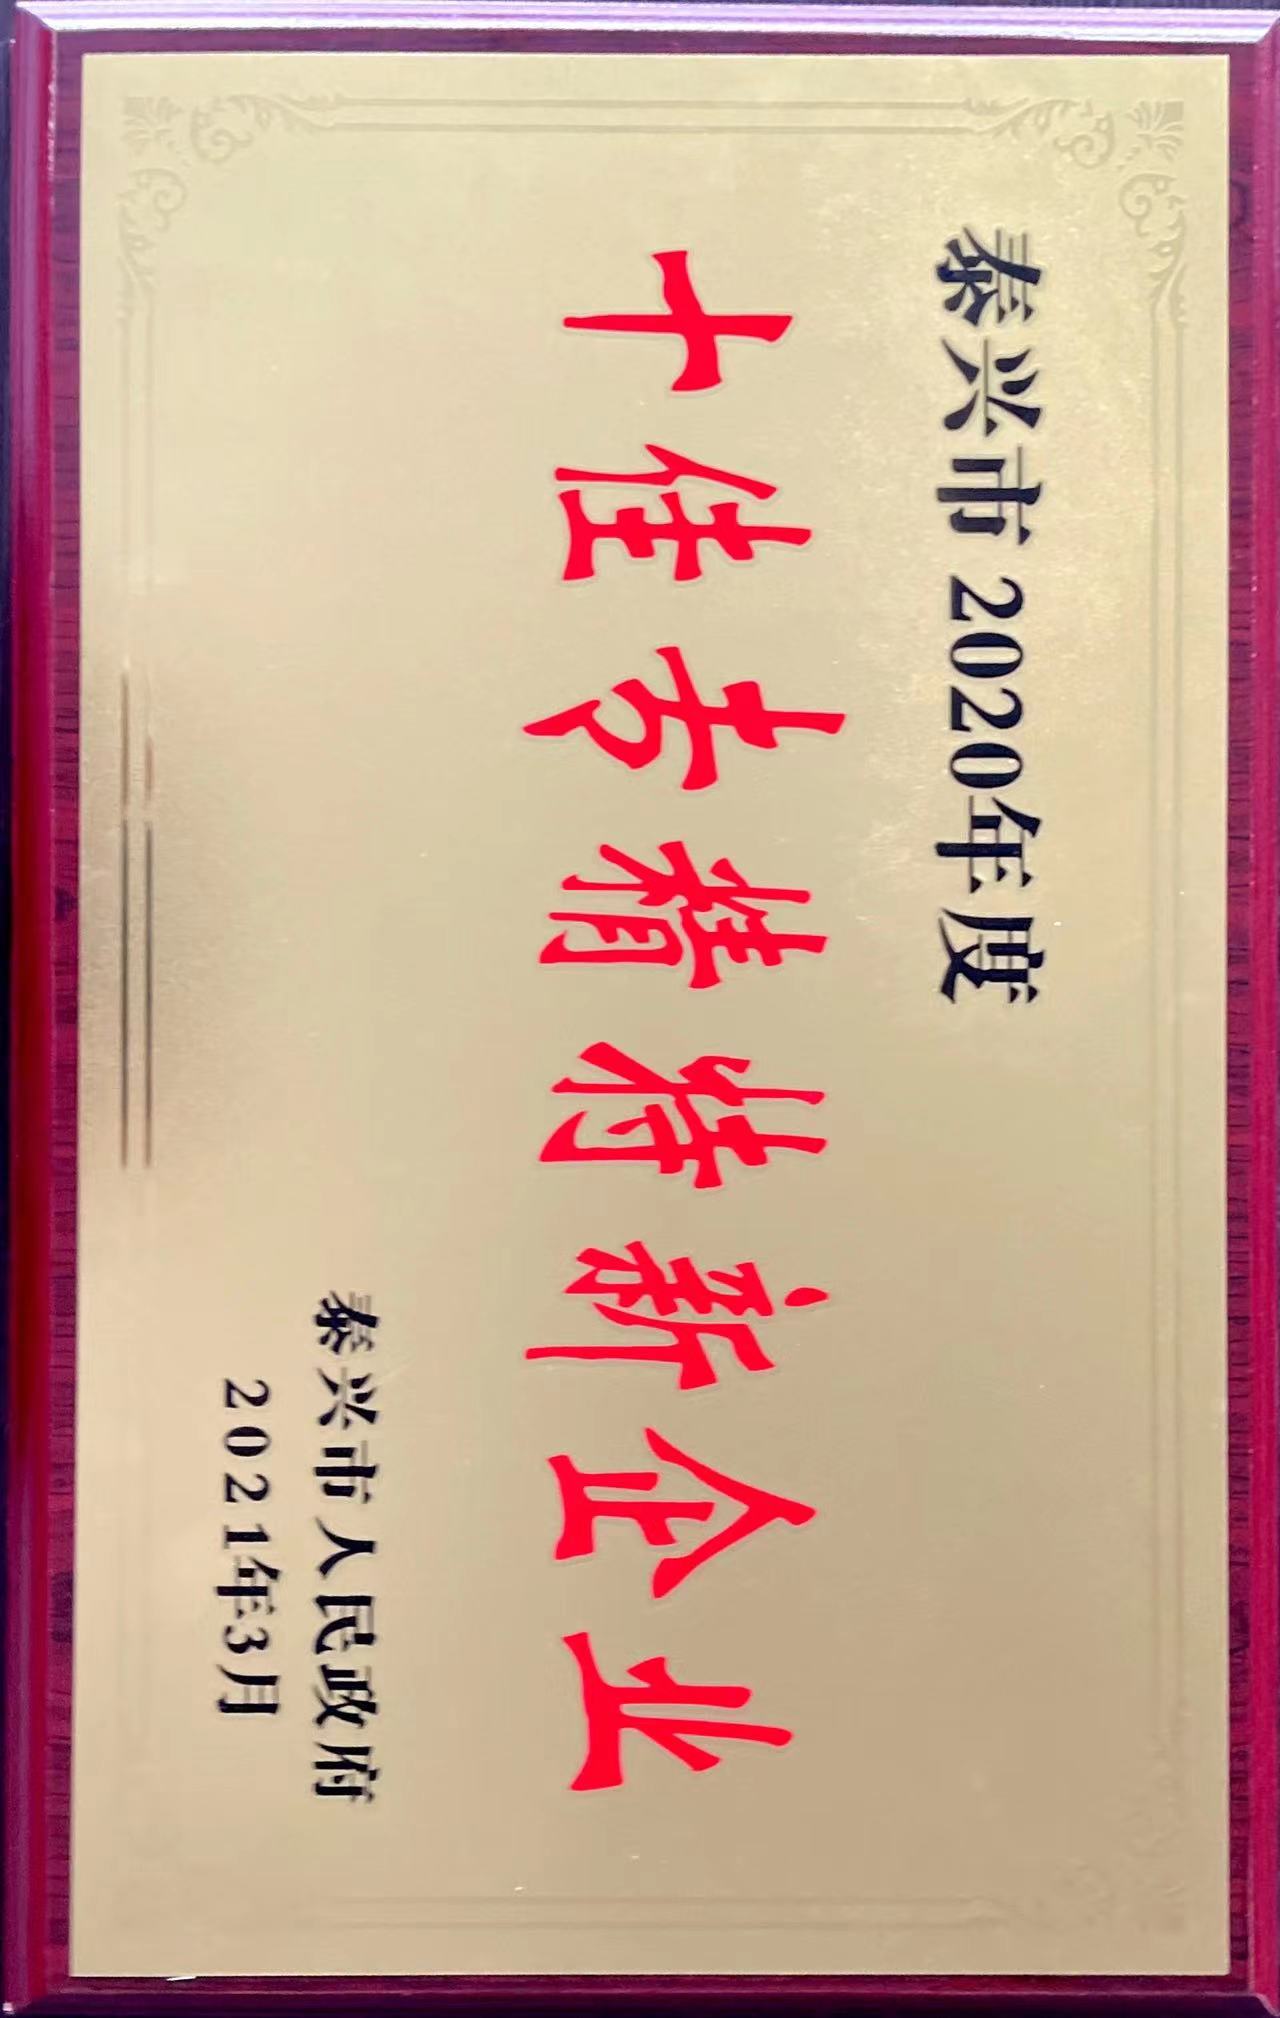 泰兴市2020年度
十佳专精特新企业
泰兴市人民政府
2021年3月